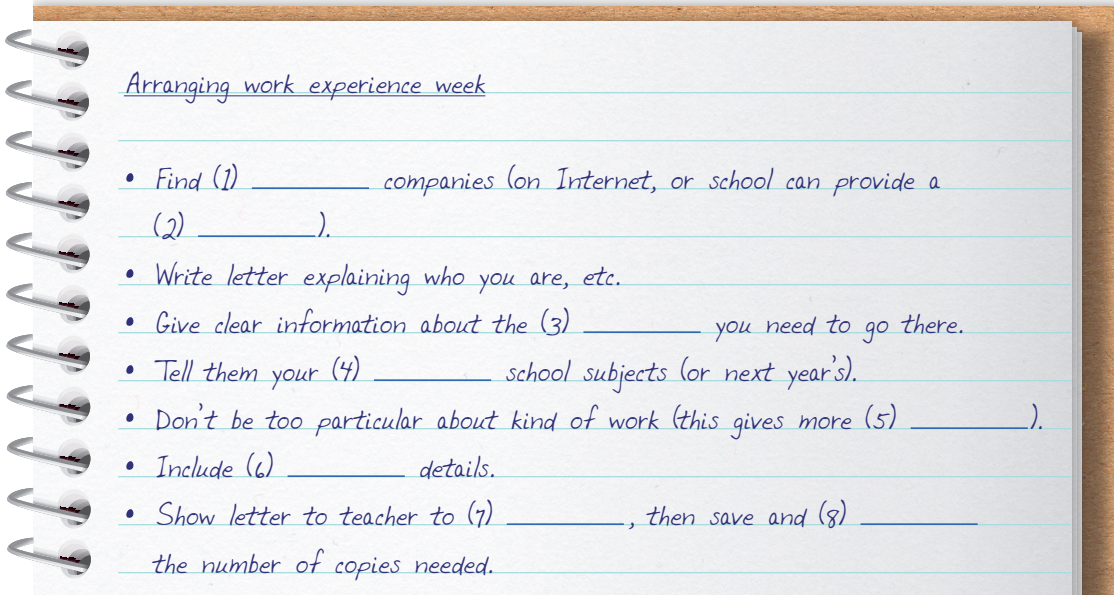 Arranging work experience week
• Find (1) __________ companies (on Internet, or school can provide a
(2) __________).
• Write letter explaining who you are, etc.
• Give clear information about the (3) __________ you need to go there.
• Tell them your (4) __________ school subjects (or next year's).
• Don't be too particular about kind of work (this gives more (5) __________).
• Include (6) __________ details.
• Show letter to teacher to (7) __________, then save and (8) __________
the number of copies needed.